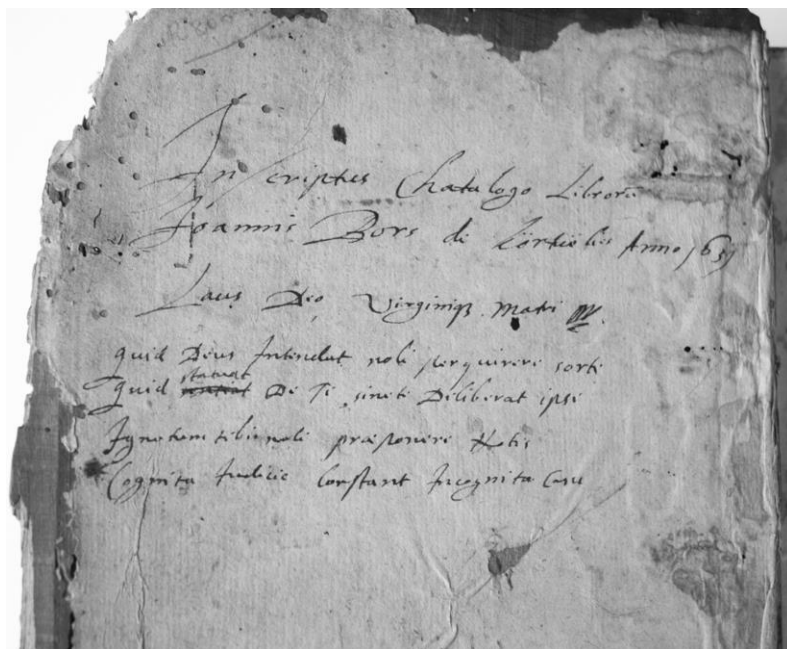 Inscriptus Chatalogo Librorũ
Joannis Bors de Anno 1659
Laus Deo Virginiqȝ Matri
quid Deus Intendat noli perquirere sorte
statuat
quid sentiat De Te sinete Deliberat ipse
Ignotum tibi noli præponere Notis
Cognita Iudicio Constant Incognita Casu